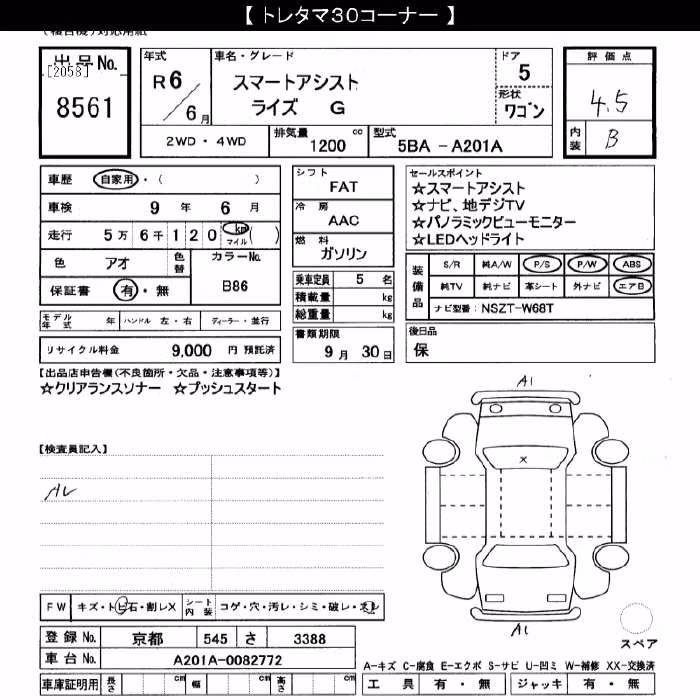 【 トレタマ30コーナー 】
出品No.
[2058]
8561
年式
R6
6月
車名・グレード
スマートアシスト
ライズ G
ドア
5
形状
ワゴン
評価点
4.5
内装
B
2WD・4WD
排気量
1200 cc
型式
5BA -A201A
車歴 自家用・( )
車検 9 年 6 月
走行 5万 6千 1 2 0 km マイル ( )
色 アオ 色替
カラーNo.
B86
保証書 有・無
シフト
FAT
冷房
AAC
燃料
ガソリン
乗車定員 5 名
積載量 kg
総重量 kg
書類期限
9月 30日
セールスポイント
☆スマートアシスト
☆ナビ、地デジTV
☆パノラミックビューモニター
☆LEDヘッドライト
装備品
S/R 純A/W P/S P/W ABS
純TV 純ナビ 革シート 外ナビ エアB
ナビ型番: NSZT-W68T
後日品
保
モデル年式 年 ハンドル 左・右 ディーラー・並行
リサイクル料金 9,000 円 預託済
【出品店申告欄(不良箇所・欠品・注意事項等)】
☆クリアランスソナー ☆プッシュスタート
【検査員記入】
A1
X
A1
FW キズ・トビ石・割レX シート内装 コゲ・穴・汚レ・シミ・破レ・スレ
登録No. 京都 545 さ 3388
車台No. A201A-0082772
車庫証明用 長さ cm 幅 cm 高さ cm
スペア
A-キズ C-腐食 E-エクボ S-サビ U-凹ミ W-補修 XX-交換済
工具 有・無 ジャッキ 有・無